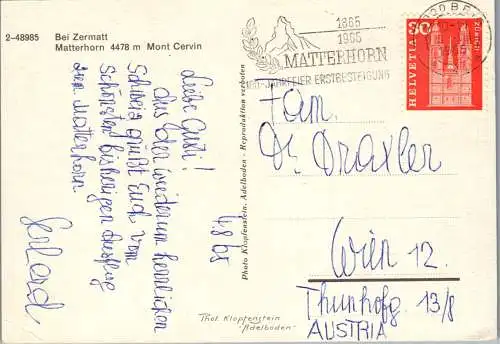 2-48985 Bei Zermatt
Matterhorn 4478 m Mont Cervin
1865
1965
MATTERHORN
100-JAHRFEIER ERSTBESTEIGUNG
30
HELVETIA
Zürich
4.8.65
Liebe Gusti!
Aus der wiederum herrlichen
Schweiz grüßt Euch vom
schönsten bisherigen Ausflug
zum Matterhorn
Gerhard
Photo Klopfenstein, Adelboden - Reproduktion verboten
Fam.
Dr. Draxler
Wien 12.
Thunhofg. 13/8
AUSTRIA
Phot. Klopfenstein
"Adelboden"